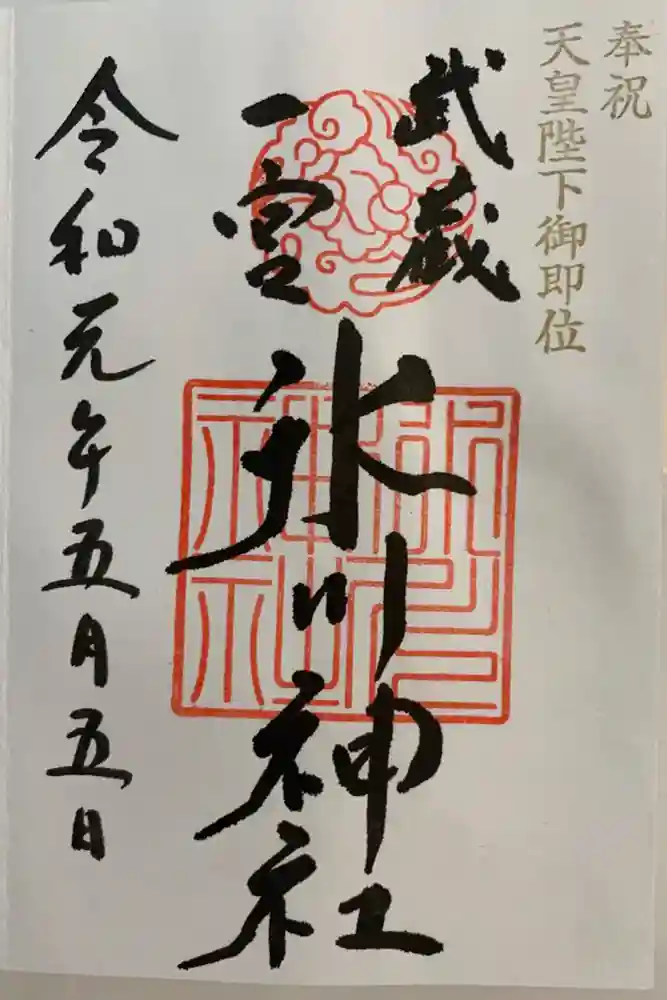 奉祝
天皇陛下御即位
武蔵
一宮
氷川神社
令和元年五月五日
氷川
神社